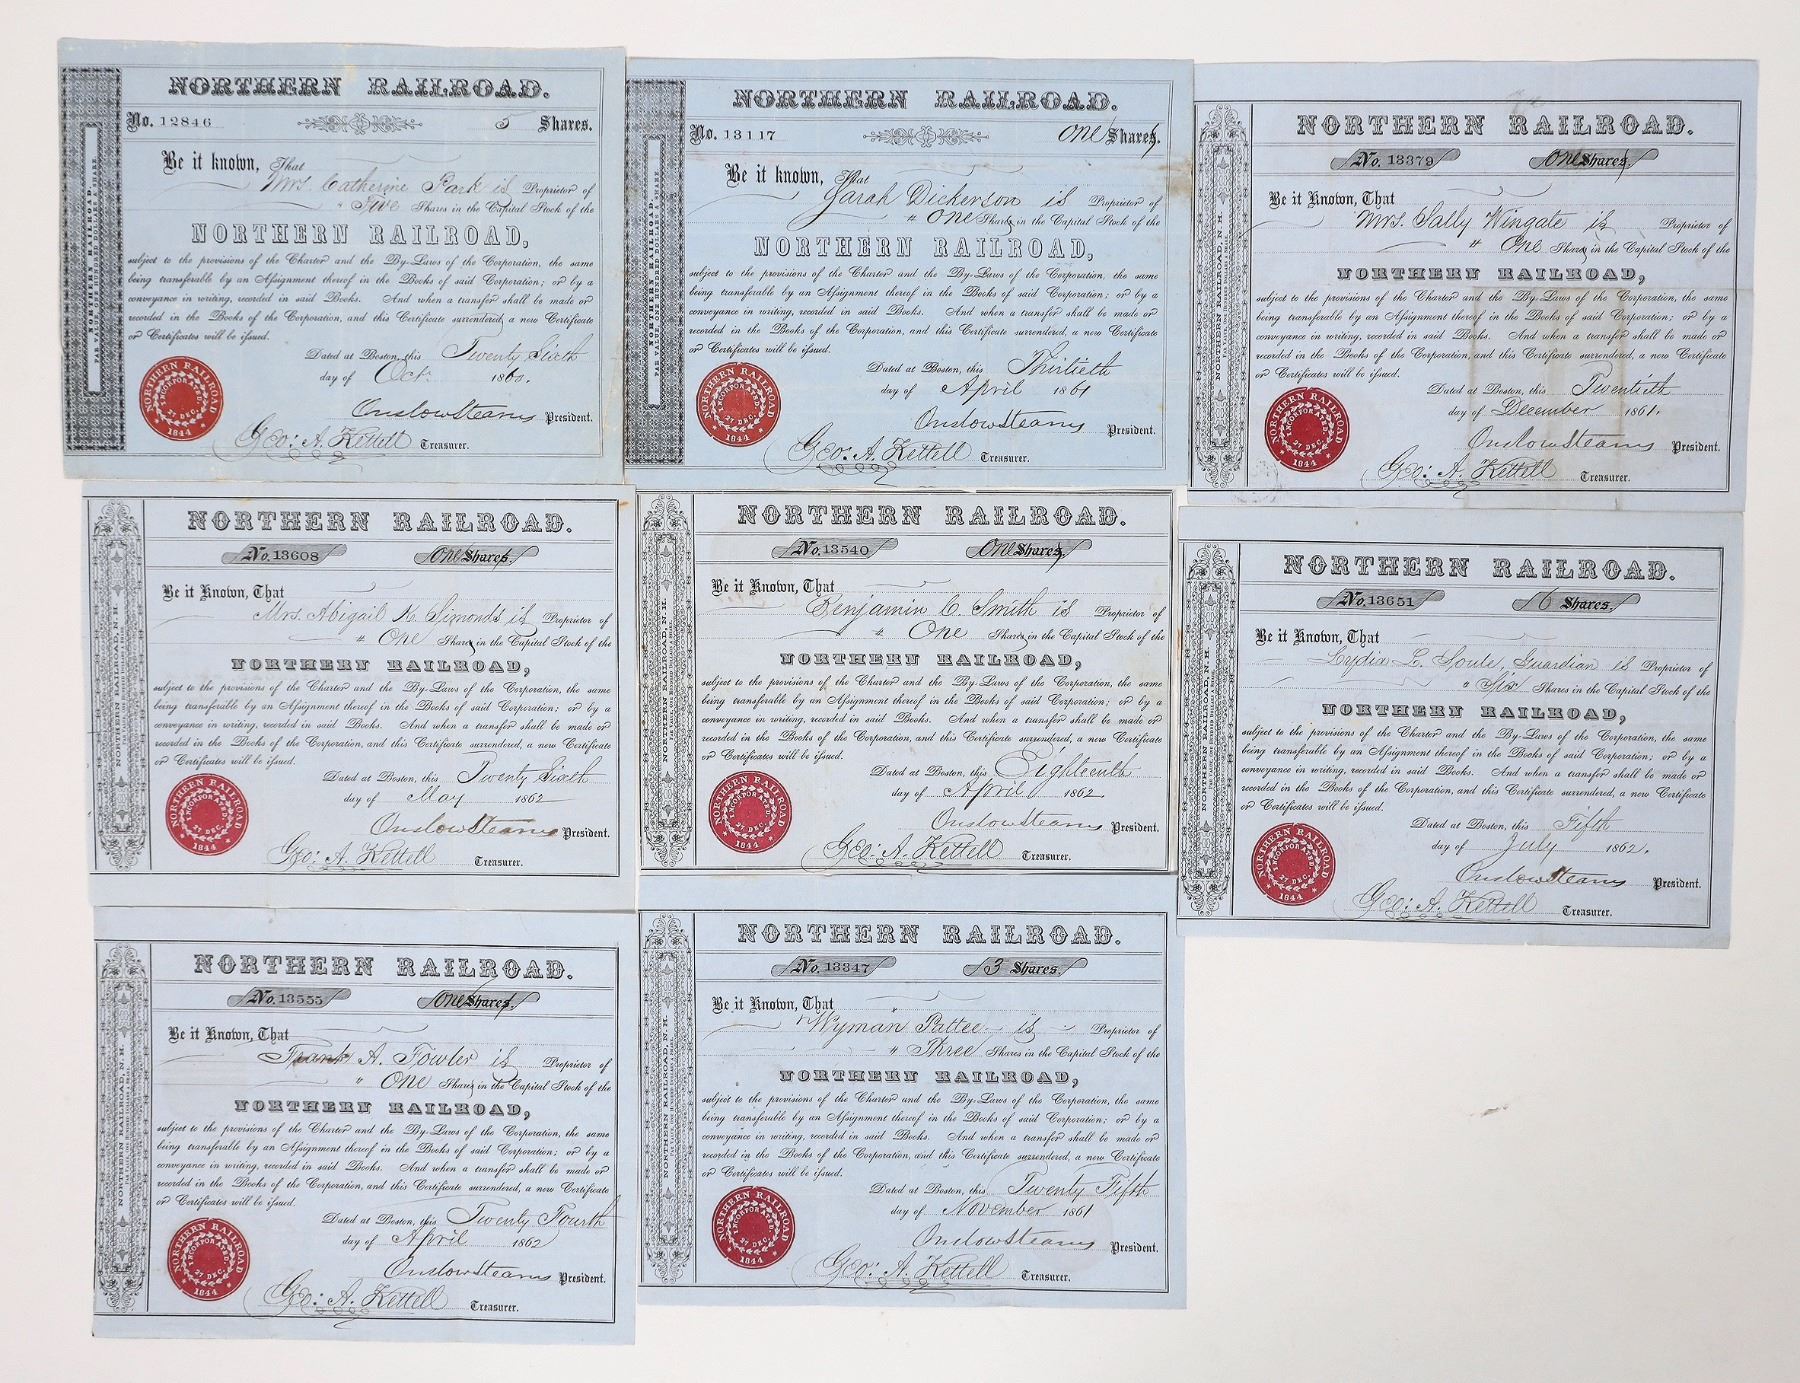 NORTHERN RAILROAD.
No. 12846 5 Shares.
Be it known, That
Mrs. Catherine Park is Proprietor of
" Five Shares in the Capital Stock of the
NORTHERN RAILROAD,
subject to the provisions of the Charter and the By-Laws of the Corporation, the same
being transferable by an Assignment thereof in the Books of said Corporation; or by a
conveyance in writing, recorded in said Books. And when a transfer shall be made or
recorded in the Books of the Corporation, and this Certificate surrendered, a new Certificate
or Certificates will be issued.
Dated at Boston, this Twenty Sixth
day of Oct. 1860.
Onslow Stearns President.
Geo: A. Kettell Treasurer.
NORTHERN RAILROAD
INCORPORATED
27 DEC.
1844
NORTHERN RAILROAD.
PAR VALUE ONE HUNDRED DOLLARS A SHARE.
NORTHERN RAILROAD.
No. 13117 One Share
Be it known, That
Sarah Dickerson is Proprietor of
" One Share in the Capital Stock of the
NORTHERN RAILROAD,
subject to the provisions of the Charter and the By-Laws of the Corporation, the same
being transferable by an Assignment thereof in the Books of said Corporation; or by a
conveyance in writing, recorded in said Books. And when a transfer shall be made or
recorded in the Books of the Corporation, and this Certificate surrendered, a new Certificate
or Certificates will be issued.
Dated at Boston, this Thirtieth
day of April 1861
Onslow Stearns President.
Geo: A. Kettell Treasurer.
NORTHERN RAILROAD
INCORPORATED
27 DEC.
1844
NORTHERN RAILROAD.
PAR VALUE ONE HUNDRED DOLLARS A SHARE.
NORTHERN RAILROAD.
No. 13379 One Share
Be it Known, That
Mrs. Sally Wingate is Proprietor of
" One Share in the Capital Stock of the
NORTHERN RAILROAD,
subject to the provisions of the Charter and the By-Laws of the Corporation, the same
being transferable by an Assignment thereof in the Books of said Corporation; or by a
conveyance in writing, recorded in said Books. And when a transfer shall be made or
recorded in the Books of the Corporation, and this Certificate surrendered, a new Certificate
or Certificates will be issued.
Dated at Boston, this Twentieth
day of December 1861.
Onslow Stearns President.
Geo: A. Kettell Treasurer.
NORTHERN RAILROAD
INCORPORATED
27 DEC.
1844
NORTHERN RAILROAD, N. H.
NORTHERN RAILROAD.
No. 13608 One Share
Be it Known, That
Mrs. Abigail K. Simonds is Proprietor of
" One Share in the Capital Stock of the
NORTHERN RAILROAD,
subject to the provisions of the Charter and the By-Laws of the Corporation, the same
being transferable by an Assignment thereof in the Books of said Corporation; or by a
conveyance in writing, recorded in said Books. And when a transfer shall be made or
recorded in the Books of the Corporation, and this Certificate surrendered, a new Certificate
or Certificates will be issued.
Dated at Boston, this Twenty Sixth
day of May 1862
Onslow Stearns President.
Geo: A. Kettell Treasurer.
NORTHERN RAILROAD
INCORPORATED
27 DEC.
1844
NORTHERN RAILROAD, N. H.
NORTHERN RAILROAD.
No. 13540 One Share
Be it Known, That
Benjamin C. Smith is Proprietor of
" One Share in the Capital Stock of the
NORTHERN RAILROAD,
subject to the provisions of the Charter and the By-Laws of the Corporation, the same
being transferable by an Assignment thereof in the Books of said Corporation; or by a
conveyance in writing, recorded in said Books. And when a transfer shall be made or
recorded in the Books of the Corporation, and this Certificate surrendered, a new Certificate
or Certificates will be issued.
Dated at Boston, this Eighteenth
day of April 1862
Onslow Stearns President.
Geo: A. Kettell Treasurer.
NORTHERN RAILROAD
INCORPORATED
27 DEC.
1844
NORTHERN RAILROAD, N. H.
NORTHERN RAILROAD.
No. 13651 6 Shares.
Be it Known, That
Lydia L. Soule, Guardian is Proprietor of
" Six Shares in the Capital Stock of the
NORTHERN RAILROAD,
subject to the provisions of the Charter and the By-Laws of the Corporation, the same
being transferable by an Assignment thereof in the Books of said Corporation; or by a
conveyance in writing, recorded in said Books. And when a transfer shall be made or
recorded in the Books of the Corporation, and this Certificate surrendered, a new Certificate
or Certificates will be issued.
Dated at Boston, this Fifth
day of July 1862.
Onslow Stearns President.
Geo: A. Kettell Treasurer.
NORTHERN RAILROAD
INCORPORATED
27 DEC.
1844
NORTHERN RAILROAD, N. H.
NORTHERN RAILROAD.
No. 13555 One Share
Be it Known, That
Frank A. Fowler is Proprietor of
" One Share in the Capital Stock of the
NORTHERN RAILROAD,
subject to the provisions of the Charter and the By-Laws of the Corporation, the same
being transferable by an Assignment thereof in the Books of said Corporation; or by a
conveyance in writing, recorded in said Books. And when a transfer shall be made or
recorded in the Books of the Corporation, and this Certificate surrendered, a new Certificate
or Certificates will be issued.
Dated at Boston, this Twenty Fourth
day of April 1862
Onslow Stearns President.
Geo: A. Kettell Treasurer.
NORTHERN RAILROAD
INCORPORATED
27 DEC.
1844
NORTHERN RAILROAD, N. H.
NORTHERN RAILROAD.
No. 13347 3 Shares.
Be it Known, That
Wyman Pattee is Proprietor of
" Three Shares in the Capital Stock of the
NORTHERN RAILROAD,
subject to the provisions of the Charter and the By-Laws of the Corporation, the same
being transferable by an Assignment thereof in the Books of said Corporation; or by a
conveyance in writing, recorded in said Books. And when a transfer shall be made or
recorded in the Books of the Corporation, and this Certificate surrendered, a new Certificate
or Certificates will be issued.
Dated at Boston, this Twenty Fifth
day of November 1861
Onslow Stearns President.
Geo: A. Kettell Treasurer.
NORTHERN RAILROAD
INCORPORATED
27 DEC.
1844
NORTHERN RAILROAD, N. H.